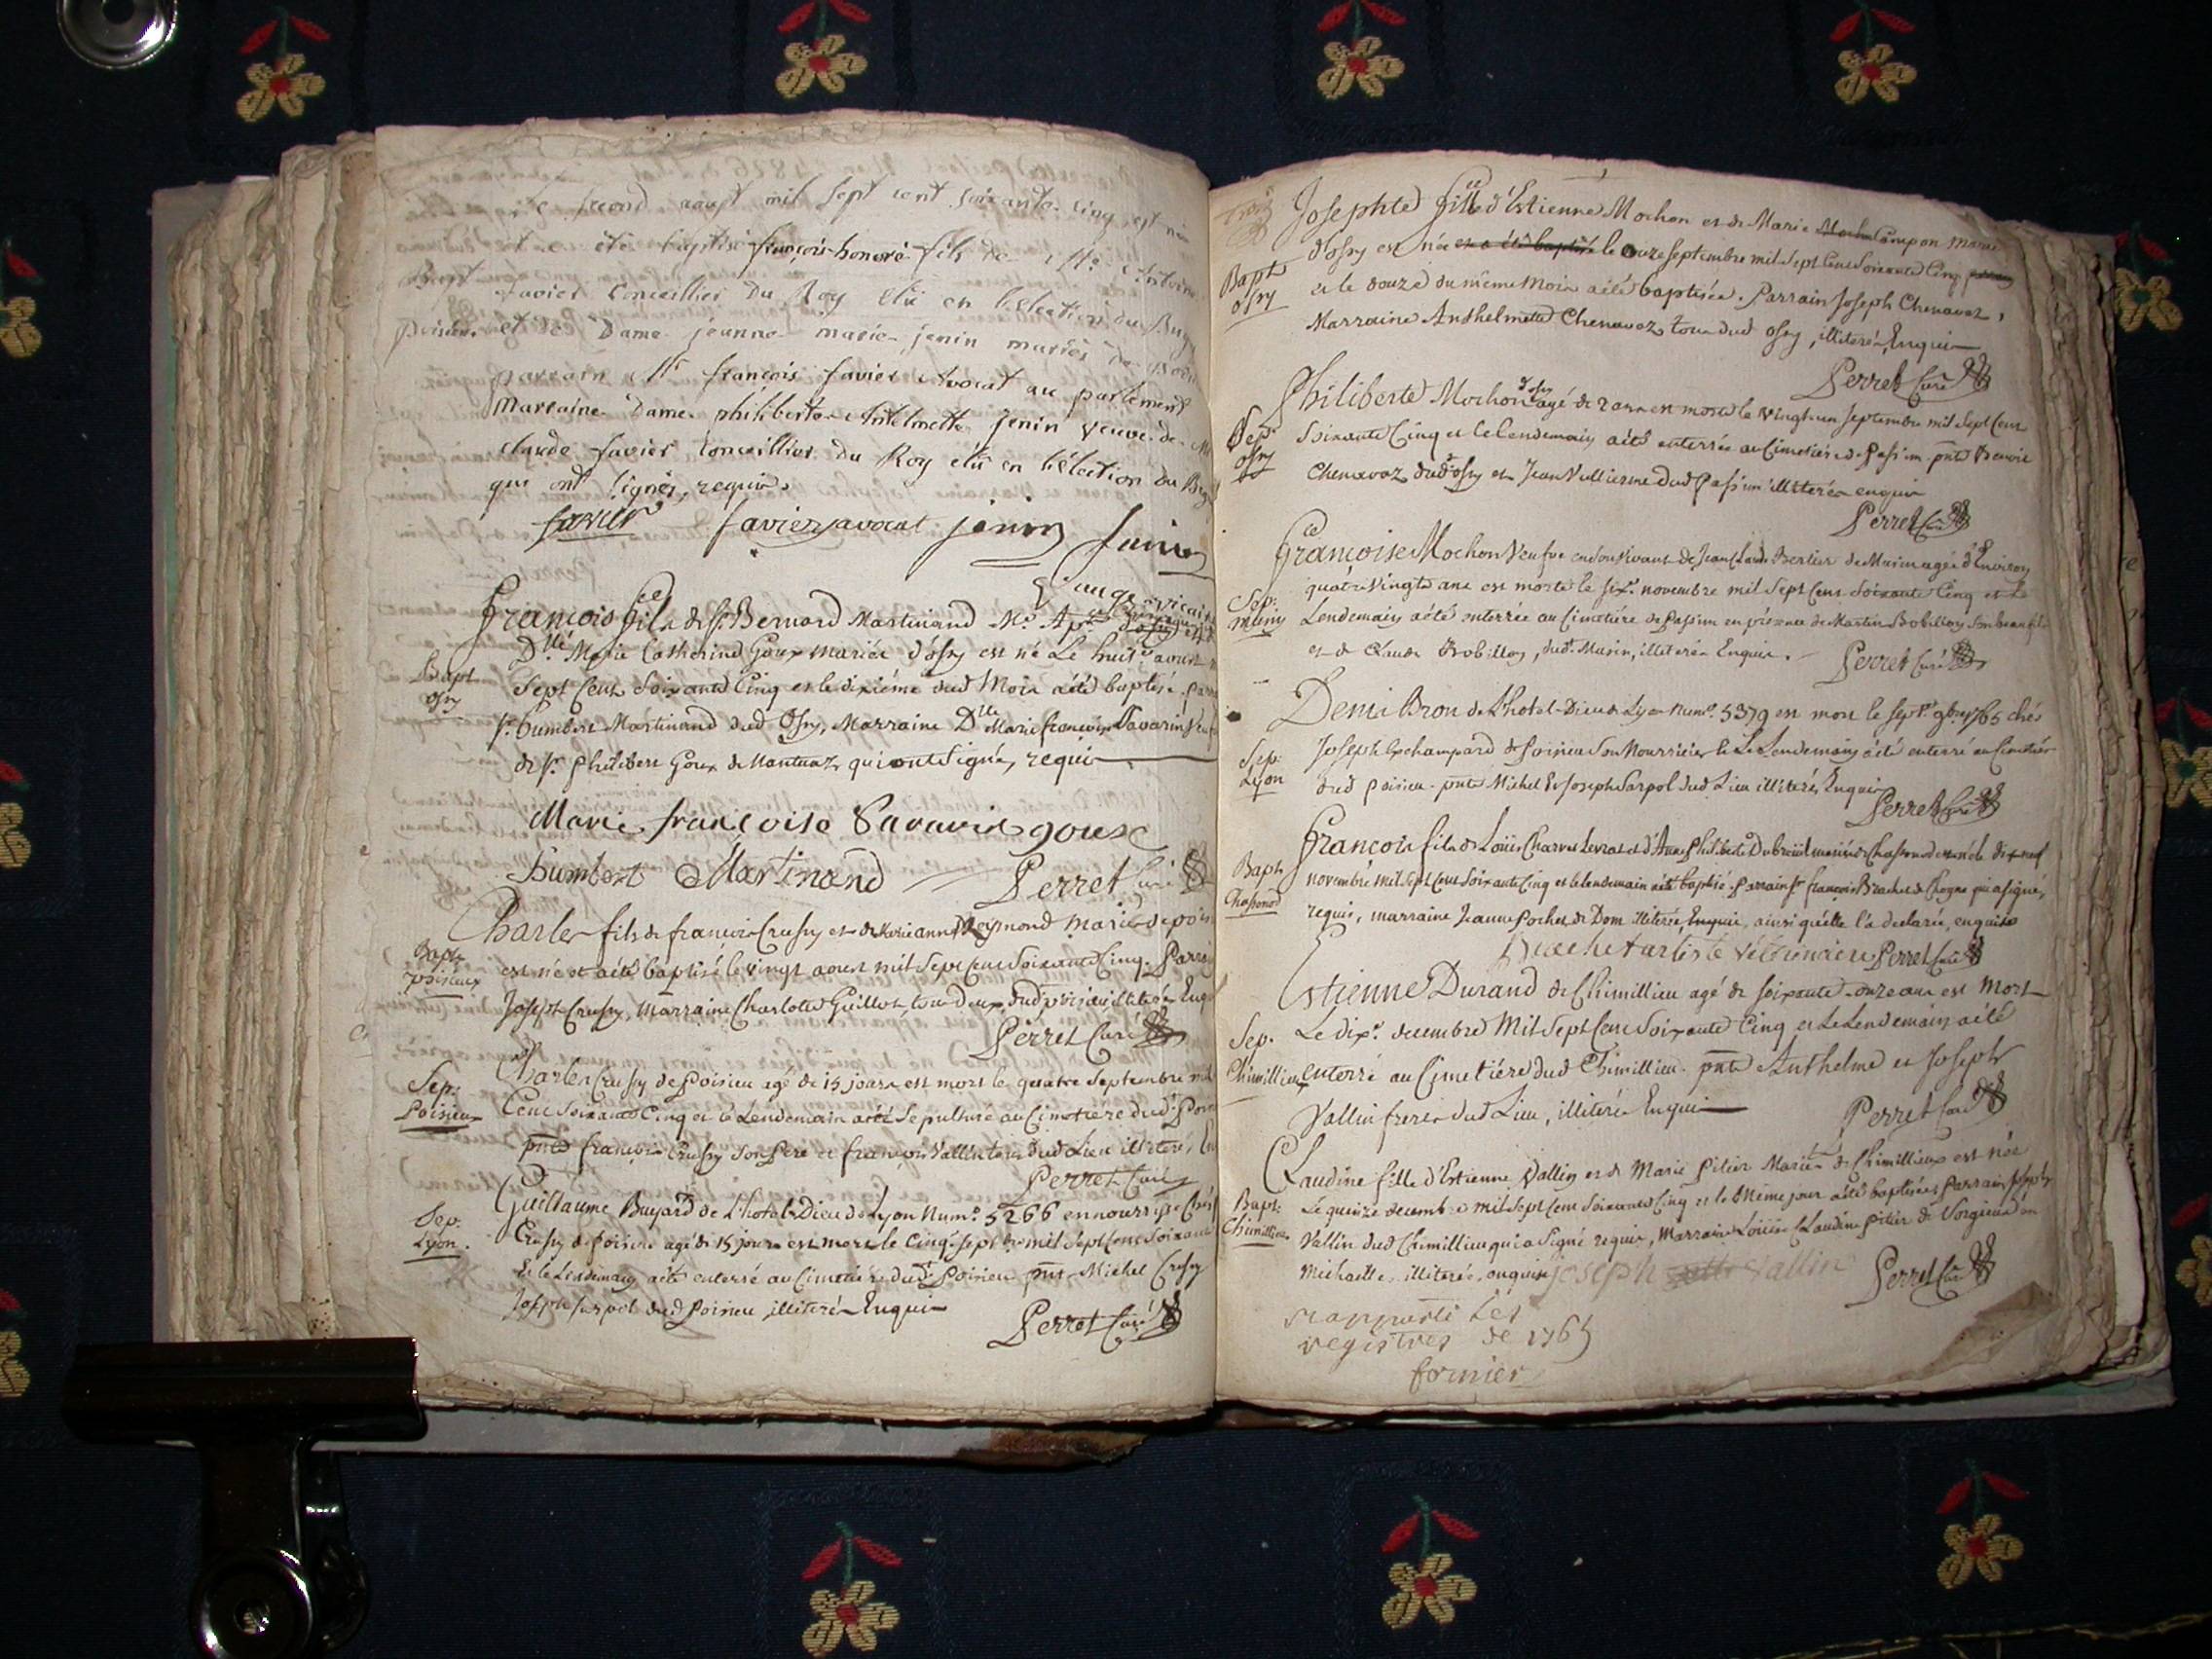 Le second aoust mil sept cent soixante cinq est né
et a eté baptisé françois honoré fils de Mr. Antoine
Bapt favier Conseillier du Roy elû en l'élection du Bugey
poisieu et de Dame jeanne marie jenin mariés de
parrain Mr françois favier Avocat au parlement
Marraine Dame philiberte Antelmette jenin veuve de Mr
claude favier Conseillier du Roy elû en l'élection du Bugey
qui ont signés, requis.
favier favier avocat jenin
François fils de Sr. Bernard Martinand Me.
Dlle Marie Catherine Goux mariés d'Ossy est né Le huit aoust
Bapt sept Cent soixante Cinq et le dixiéme dud Mois a été baptisé.
Ossy
Sr. humbert Martinand dud Ossy, Marraine Dlle Marie françoise Savarin
de Sr. Philibert Goux de Nantuaz qui ont signé, requis
Marie françoise Savarin goux
humbert Martinand Perret Curé
Charles fils de francois Crussy et de Marie anne Reymond mariés de
Bapt est né et a été baptisé le vingt aoust mil sept Cent soixante Cinq.
poisieux
Joseph Crussy, Marraine Charlotte Guillot, tous deux dud poisieu illiterés
Perret Curé
Charles Crussy de Poisieu agé de 15 jours est mort le quatre septembre mil
Sep: Cent soixante Cinq et le Lendemain a eté sepulturé au Cimetiere dud.
Poisieu
pnts françois Crussy son Pere et françois Vallin tous dud Lieu illiterés,
Perret Curé
Guillaume Buyard de L'hotel-Dieu de Lyon Numo. 5266 en nourrisse Chés
Sep: Crussy de Poisieu agé de 15 jours est mort le Cinq. septbre mil sept Cent soixante
Lyon.
et le Lendemain a été enterré au Cimetiere dud. Poisieu pnts Michel Crussy
Joseph sarpol dud Poisieu illiterés Enquis
Perret Curé
Josephte fille d'Estienne Mochon et de Marie Campon mariés
d'ossy est née et a été baptisée le onze septembre mil sept Cent soixante Cinq
Bapt et le douze du même Mois a été baptisée. Parrain Joseph Chenavaz,
ossy
Marraine Anthelmette Chenavaz tous dud ossy, illiterés, Enquis
Perret Curé
Philiberte Mochon d'ossy agé de 2 ans est morte le vingt-un septembre mil sept Cent
Sep. soixante Cinq et le Lendemain a été enterrée au Cimetiere de Passin pnts Benoit
ossy
Chenavaz dud. ossy et Jean Vullierme dud Passin illiterés enquis
Perret Curé
Françoise Mochon Veufve en son vivant de Jean Claude Berlier de Musin agée d'Environ
quatre Vingts ans est morte le six. novembre mil sept Cent soixante Cinq et Le
Sep: Lendemain a été enterrée au Cimetiére de Passin en présence de Martin Bobillon son beau fils
Musin
et de Claude Bobillon, dud. Musin, illiterés Enquis.
Perret Curé
Denis Bron de L'hotel-Dieu de Lyon Numo. 5379 est mort le sept. 9bre 1765 chés
Sep: Joseph Exchampard de Poisieu son Nourricier et Le Lendemain a été enterré au Cimetiére
Lyon
dud poisieu. pnts Michel et Joseph Sarpol dud Lieu illiterés, Enquis
Perret Curé
François fils de Loüis Charvet Levrat et d'Anne Philiberte Dubreüil mariés de Chassonod est né le dix neuf
Bapt. novembre mil sept Cent soixante Cinq et le lendemain a été baptisé. Parrain Sr françois Brachet de Chogne qui a signé,
Chassonod
requis, marraine Jeanne Pochet de Dom illiterée, Enquise, ainsi qu'elle l'a declarée, enquise
Perret Curé
Estienne Durand de Chimillieu agé de soixante-onze ans est Mort
Sep. Le dix. decembre Mil sept Cent soixante Cinq et Le Lendemain a été
Chimillieu enterré au Cimetiére dud Chimillieu. pnts Anthelme et Joseph
Vallin freres dud Lieu, illiterés Enquis
Perret Curé
Claudine fille d'Estienne Vallin et de Marie Pitier Mariés de Chimillieux est née
Bapt. Le quinze decembre mil sept Cent soixante Cinq et le Même jour a été baptisée, Parrain Joseph
Chimillieu
Vallin dud Chimillieu qui a signé requis, Marraine Loüise Claudine Pitier de Vorgieu en
Michaille, illiterée, enquise joseph vallin
Perret Curé
rapporté Les
registres de 1765
fornier